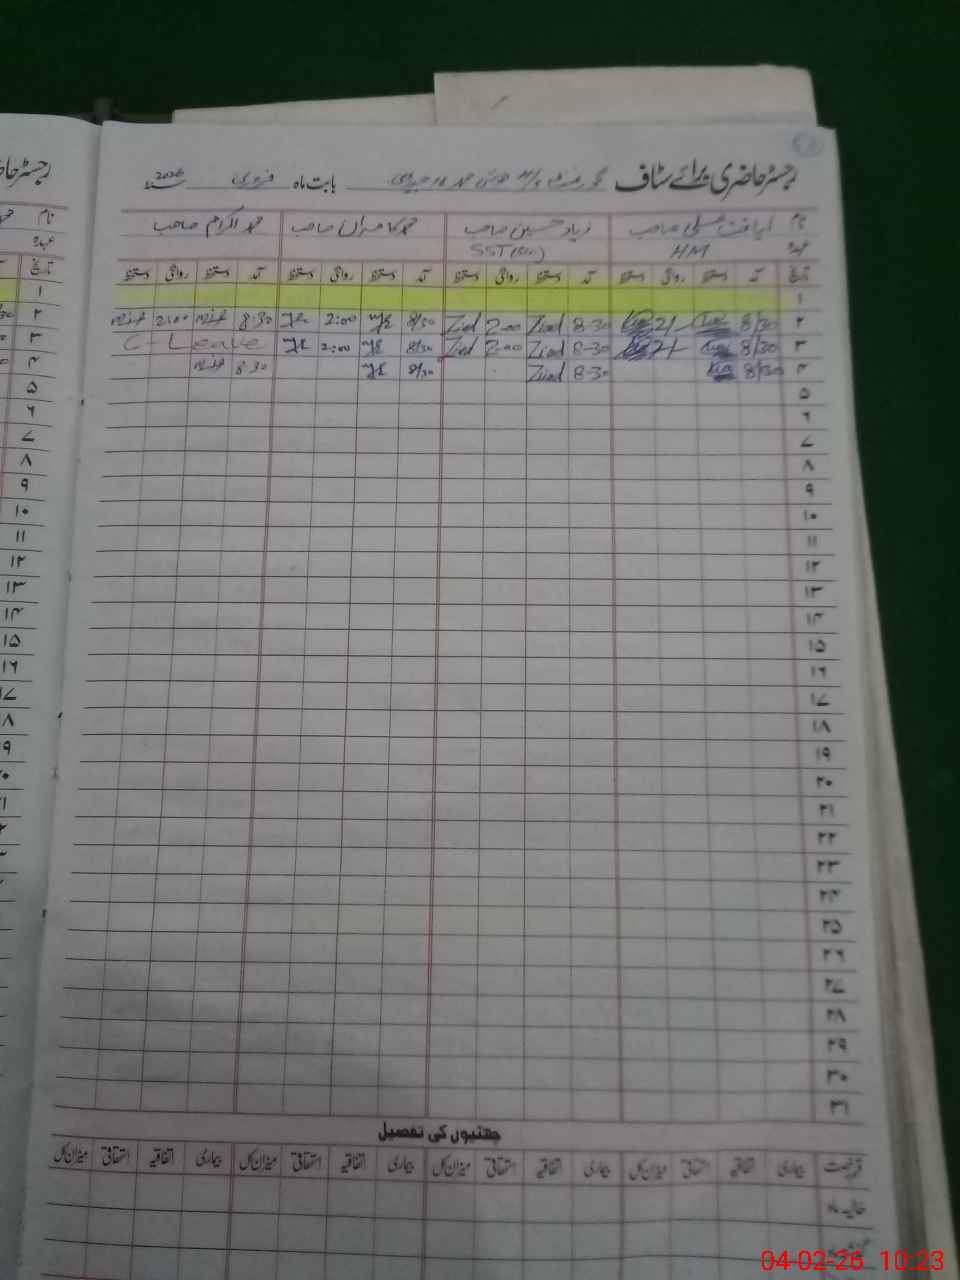 رجسٹر حاضری برائے سٹاف گورنمنٹ بابت ماہ فروری 2026
نام لیاقت علی صاحب زیاد حسین صاحب محمد کامران صاحب محمد اکرام صاحب
عہدہ HM SST
تاریخ آمد دستخط روانگی دستخط آمد دستخط روانگی دستخط آمد دستخط روانگی دستخط آمد دستخط روانگی دستخط
۱
۲ 8/30 2/- 8-30 Ziad 2-00 Ziad 8/30 2:00 8:30 2:00
۳ 8/30 2/- 8-30 Ziad 2-00 Ziad 8/30 2:00 C-Leave
۴ 8/30 8-30 Ziad 8/30 8:30
۵
۶
۷
۸
۹
۱۰
۱۱
۱۲
۱۳
۱۴
۱۵
۱۶
۱۷
۱۸
۱۹
۲۰
۲۱
۲۲
۲۳
۲۴
۲۵
۲۶
۲۷
۲۸
۲۹
۳۰
۳۱
چھٹیوں کی تفصیل
قسم رخصت بیماری اتفاقیہ استحقاقی میزان کل بیماری اتفاقیہ استحقاقی میزان کل بیماری اتفاقیہ استحقاقی میزان کل بیماری اتفاقیہ استحقاقی میزان کل
حالیہ ماہ
04-02-26 10:23